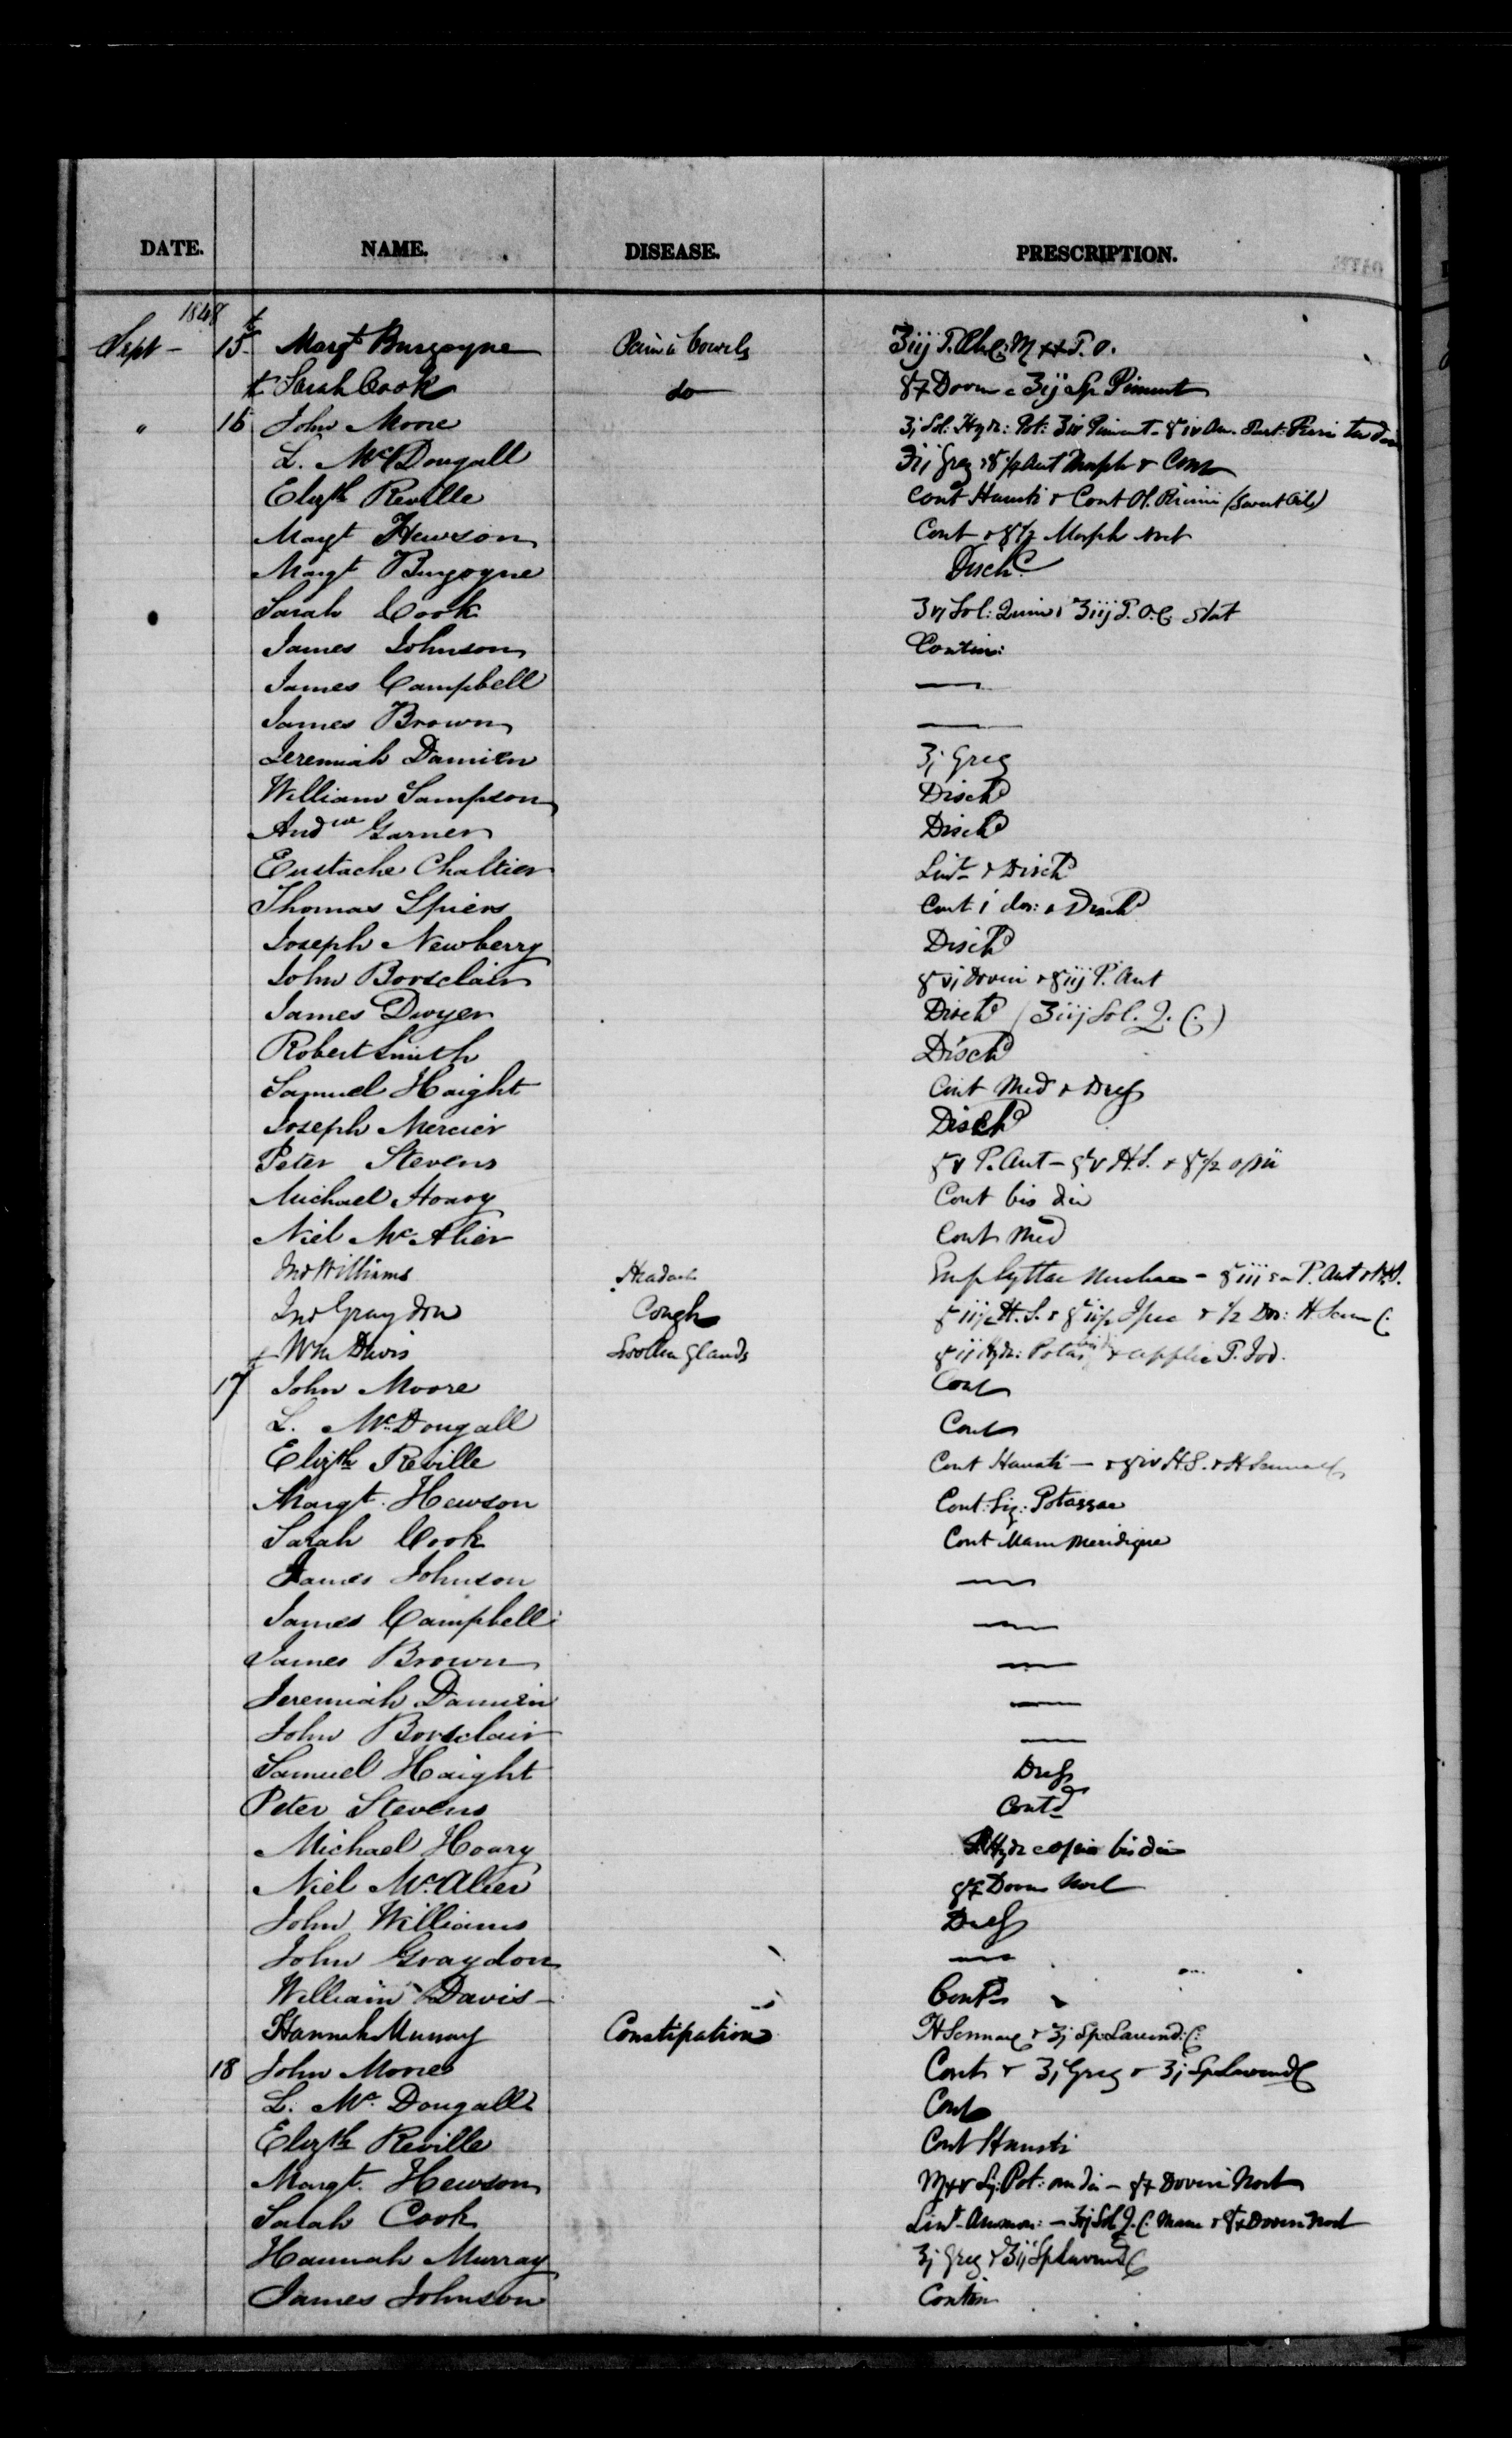 DATE. NAME. DISEASE. PRESCRIPTION.
1848
Sept - 15 Margt Burgoyne Pain in bowels
t Sarah Cook do
" 16 John Moore
L. McDougall
Elizth Reville Cont Hausti & Cont Ol. Ricini (Sweet Oil)
Margt Hewson Cont
Margt Burgoyne Disch
Sarah Cook
James Johnson Contin:
James Campbell —
James Brown —
Jeremiah Damien ʒj Greg
William Sampson Dischd
Andw Garner Dischd
Eustache Chaltier Lint & Dischd
Thomas Spiers Cont i dos: & Dischd
Joseph Newberry Dischd
John Borsclair
James Dwyer Dischd (ʒiij Sol. Q. C.)
Robert Smith Dischd
Samuel Haight Cont Med & Dress
Joseph Mercier Dischd
Peter Stevens gr v P. Ant - gr v H.S. & gr ½ opii
Michael Hoary Cont bis die
Niel McAlier Cont Med
Jno Williams Headache
Jno Graydon Cough
t Wm Davis Swollen glands
17 John Moore Cont
L. McDougall Cont
Elizth Reville Cont Hausti
Margt. Hewson Cont: Liq: Potassae
Sarah Cook Cont Mane Meridique
James Johnson —
James Campbell —
James Brown —
Jeremiah Damien —
John Borsclair —
Samuel Haight Dress
Peter Stevens Contd
Michael Hoary
Niel McAlier gr x Doveri Noct
John Williams Dress
John Graydon —
William Davis - Contd
Hannah Murray Constipation H Sennae & ʒj Sp: Lavend: C:
18 John Moore Cont & ʒj Greg & ʒj Sp Lavend C
L. Mc Dougall Cont
Elizth Reville Cont Hausti
Margt. Hewson
Sarah Cook
Hannah Murray ʒj Greg & ʒij Sp Lavend C
James Johnson Contin